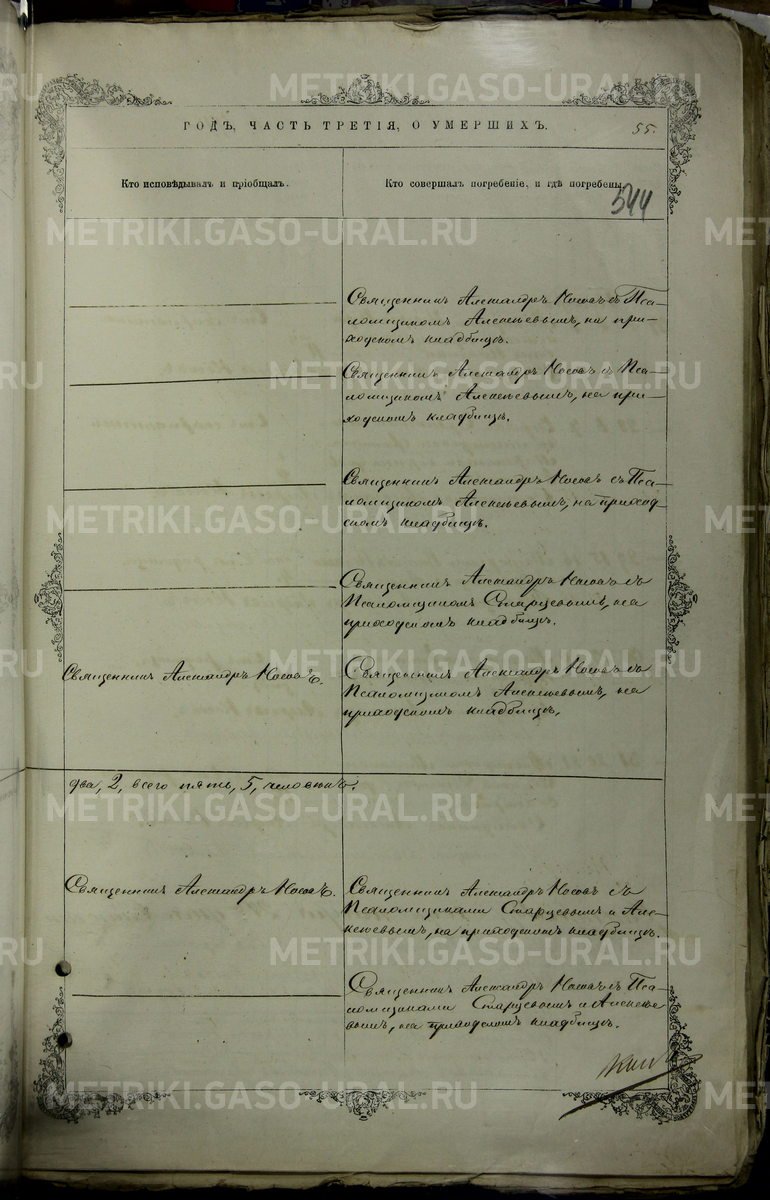 METRIKI.GASO-URAL.RU
ГОДЪ, ЧАСТЬ ТРЕТІЯ, О УМЕРШИХЪ.
55.
Кто исповѣдывалъ и пріобщалъ.
Кто совершалъ погребеніе, и гдѣ погребены.
544
Священникъ Александръ Носовъ съ Пса-
ломщикомъ Алексѣевымъ, на при-
ходскомъ кладбищѣ.
Священникъ Александръ Носовъ съ Пса-
ломщикомъ Алексѣевымъ, на при-
ходскомъ кладбищѣ.
Священникъ Александръ Носовъ съ Пса-
ломщикомъ Алексѣевымъ, на приход-
скомъ кладбищѣ.
Священникъ Александръ Носовъ съ
Псаломщикомъ Старцевымъ, на
приходскомъ кладбищѣ.
Священникъ Александръ Носовъ.
Священникъ Александръ Носовъ съ
Псаломщикомъ Алексѣевымъ, на
приходскомъ кладбищѣ.
два, 2, всего пять, 5, человѣкъ.
Священникъ Александръ Носовъ.
Священникъ Александръ Носовъ съ
Псаломщиками Старцевымъ и Алек-
сѣевымъ, на приходскомъ кладбищѣ.
Священникъ Александръ Носовъ съ Пса-
ломщиками Старцевымъ и Алексѣе-
вымъ, на приходскомъ кладбищѣ.